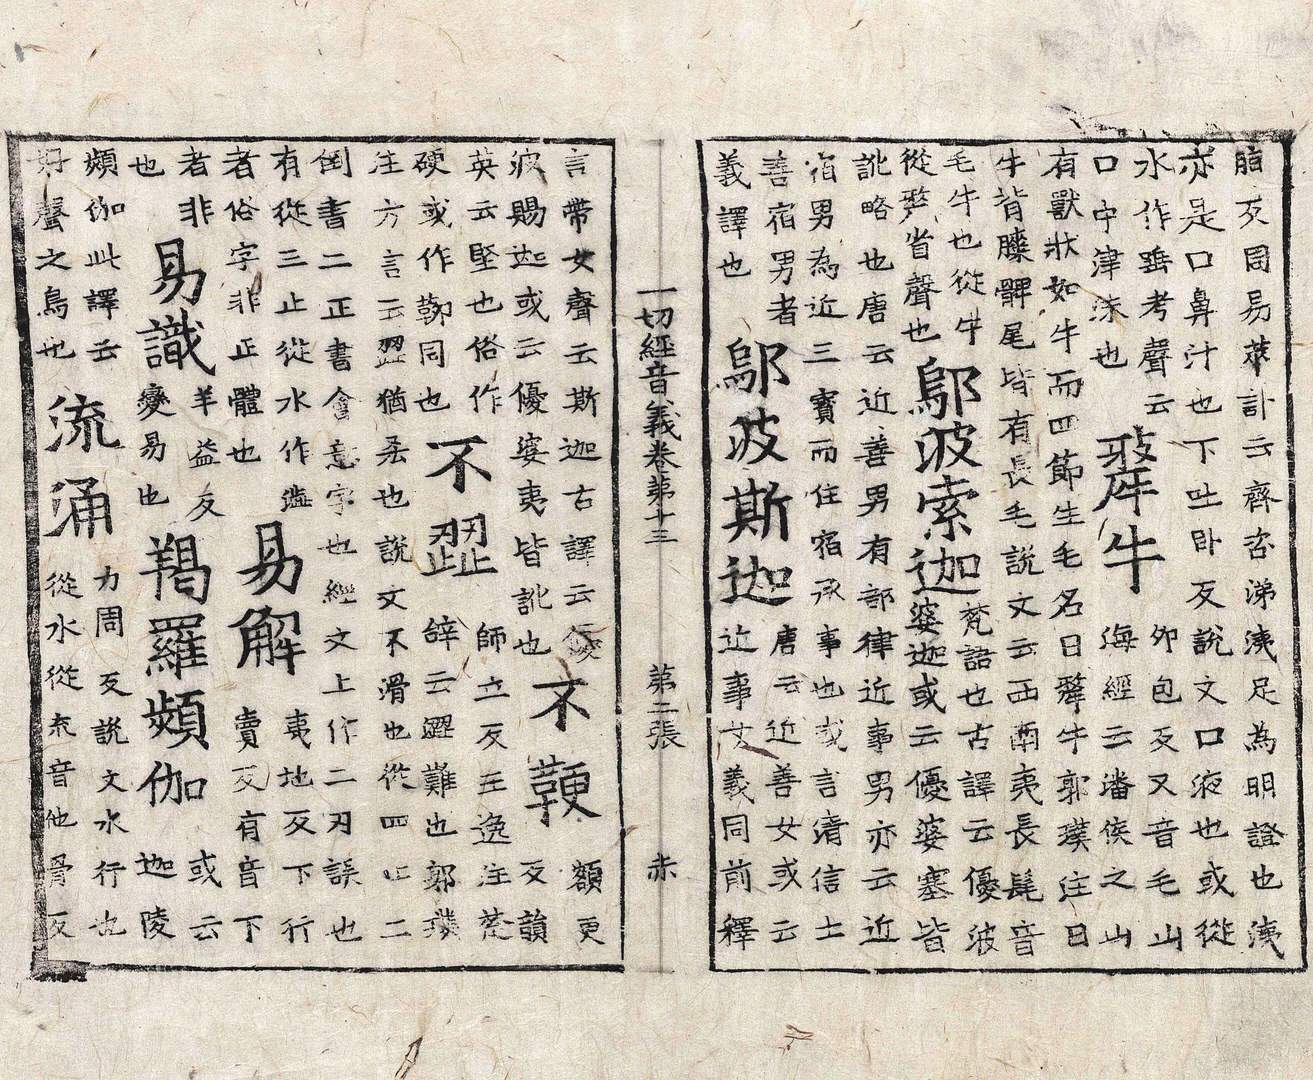 脂反周易萃卦云齊咨涕洟足為明證也洟
亦是口鼻汁也下吐卧反說文口液也或從
水作唾考聲云
口中津沫也
犛牛
卯包反又音毛山
海經云潘侯之山
有獸狀如牛而四節生毛名曰犛牛郭璞注曰
牛背膝髀尾皆有長毛說文云西南夷長髦音
毛牛也從牛
從犛省聲也
鄔波索迦
梵語也古譯云優波
婆迦或云優婆塞皆
訛略也唐云近善男有部律近事男亦云近
宿男為近三寶而住宿承事也或言清信士
善宿男者
義譯也
鄔波斯迦
唐云近善女或云
近事女義同前釋
一切經音義卷第十三 第二張 赤
言帶女聲云斯迦古譯云優
波賜迦或云優婆夷皆訛也
不鞕
額更
反韻
英云堅也俗作
硬或作䩕同也
不澀
師立反王逸注楚
辭云澀難也郭璞
注方言云澀猶也說文不滑也從四止二
倒書二正書會意字也經文上作二刃誤也
有從三止從水作澁
者俗字非正體也
易解
夷地反下行
賣反有音下
者非
也
易識
羊益反
變易也
羯羅頻伽
或云
迦陵
頻伽此譯云
好聲之鳥也
流涌
力周反說文水行也
從水從㐬音他骨反